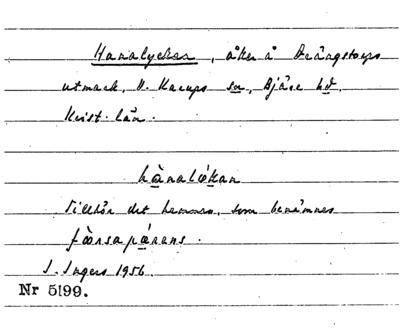 Hanalyckan, åker å Drängstorps
utmark, V. Karups sn, Bjäre hd.
Krist. län.
hànalýkan
Tillhör det hemman, som benämnes
fòrsapǽrens.
I. Ingers 1956.
Nr 5199.